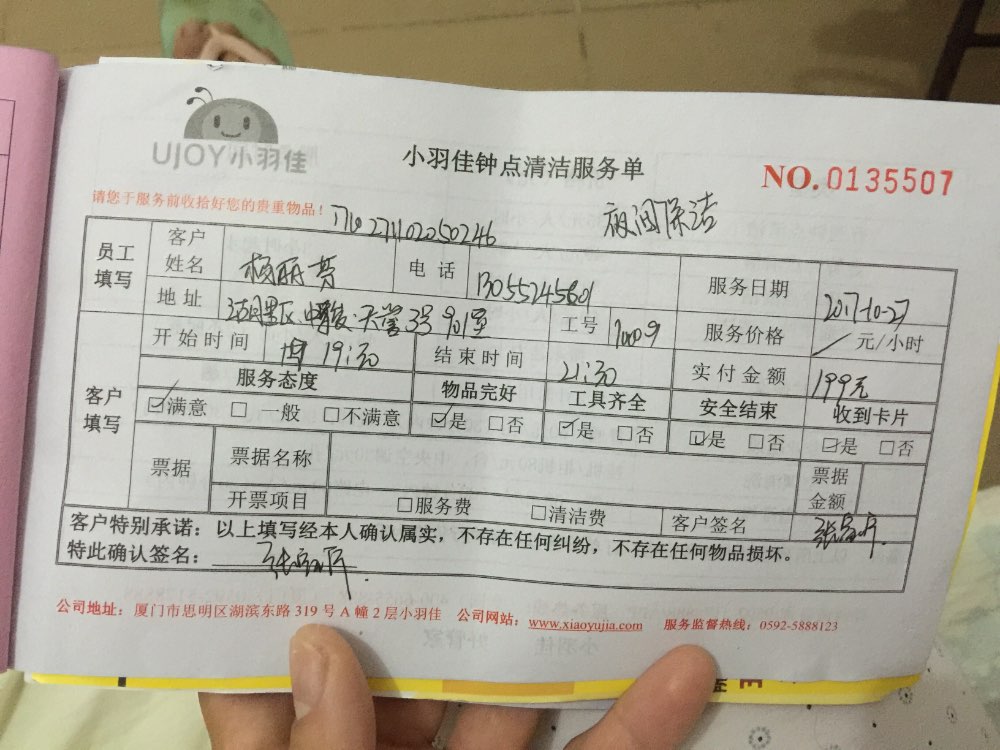 UJOY小羽佳
小羽佳钟点清洁服务单
NO. 0135507
请您于服务前收拾好您的贵重物品！
夜间保洁
员工填写
客户姓名
电话 13055245601
服务日期 2017-10-27
地址 3号901室
工号 10009
服务价格 元/小时
客户填写
开始时间 19:30
结束时间 21:30
实付金额 199元
服务态度 物品完好 工具齐全 安全结束 收到卡片
☑满意 □一般 □不满意 ☑是 □否 ☑是 □否 ☑是 □否 ☑是 □否
票据 票据名称 票据金额
开票项目 □服务费 □清洁费 客户签名
客户特别承诺：以上填写经本人确认属实，不存在任何纠纷，不存在任何物品损坏。
特此确认签名：
公司地址：厦门市思明区湖滨东路 319 号 A 幢 2 层小羽佳 公司网站：www.xiaoyujia.com 服务监督热线：0592-5888123